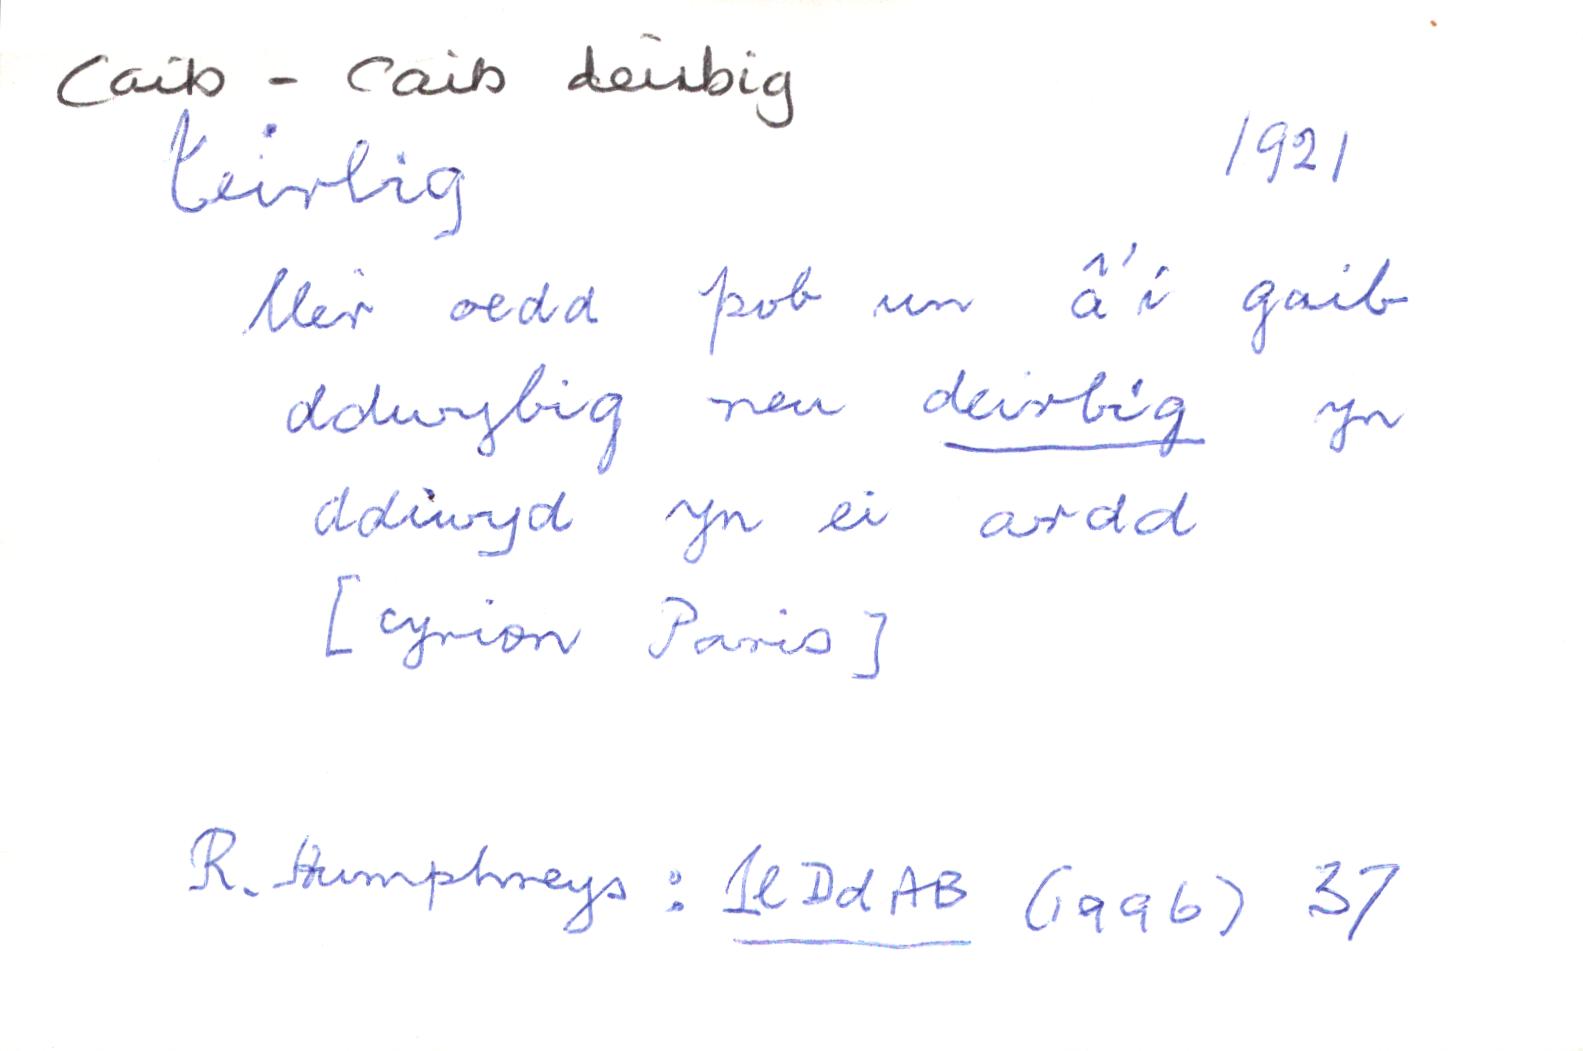 Caib - caib deirbig
teirbig 1921
Mêr oedd pob un â'i gaib
ddwybig neu deirbig yn
ddiwyd yn ei ardd
[cyrion Paris]
R. Humphreys : LlDdAB (1996) 37